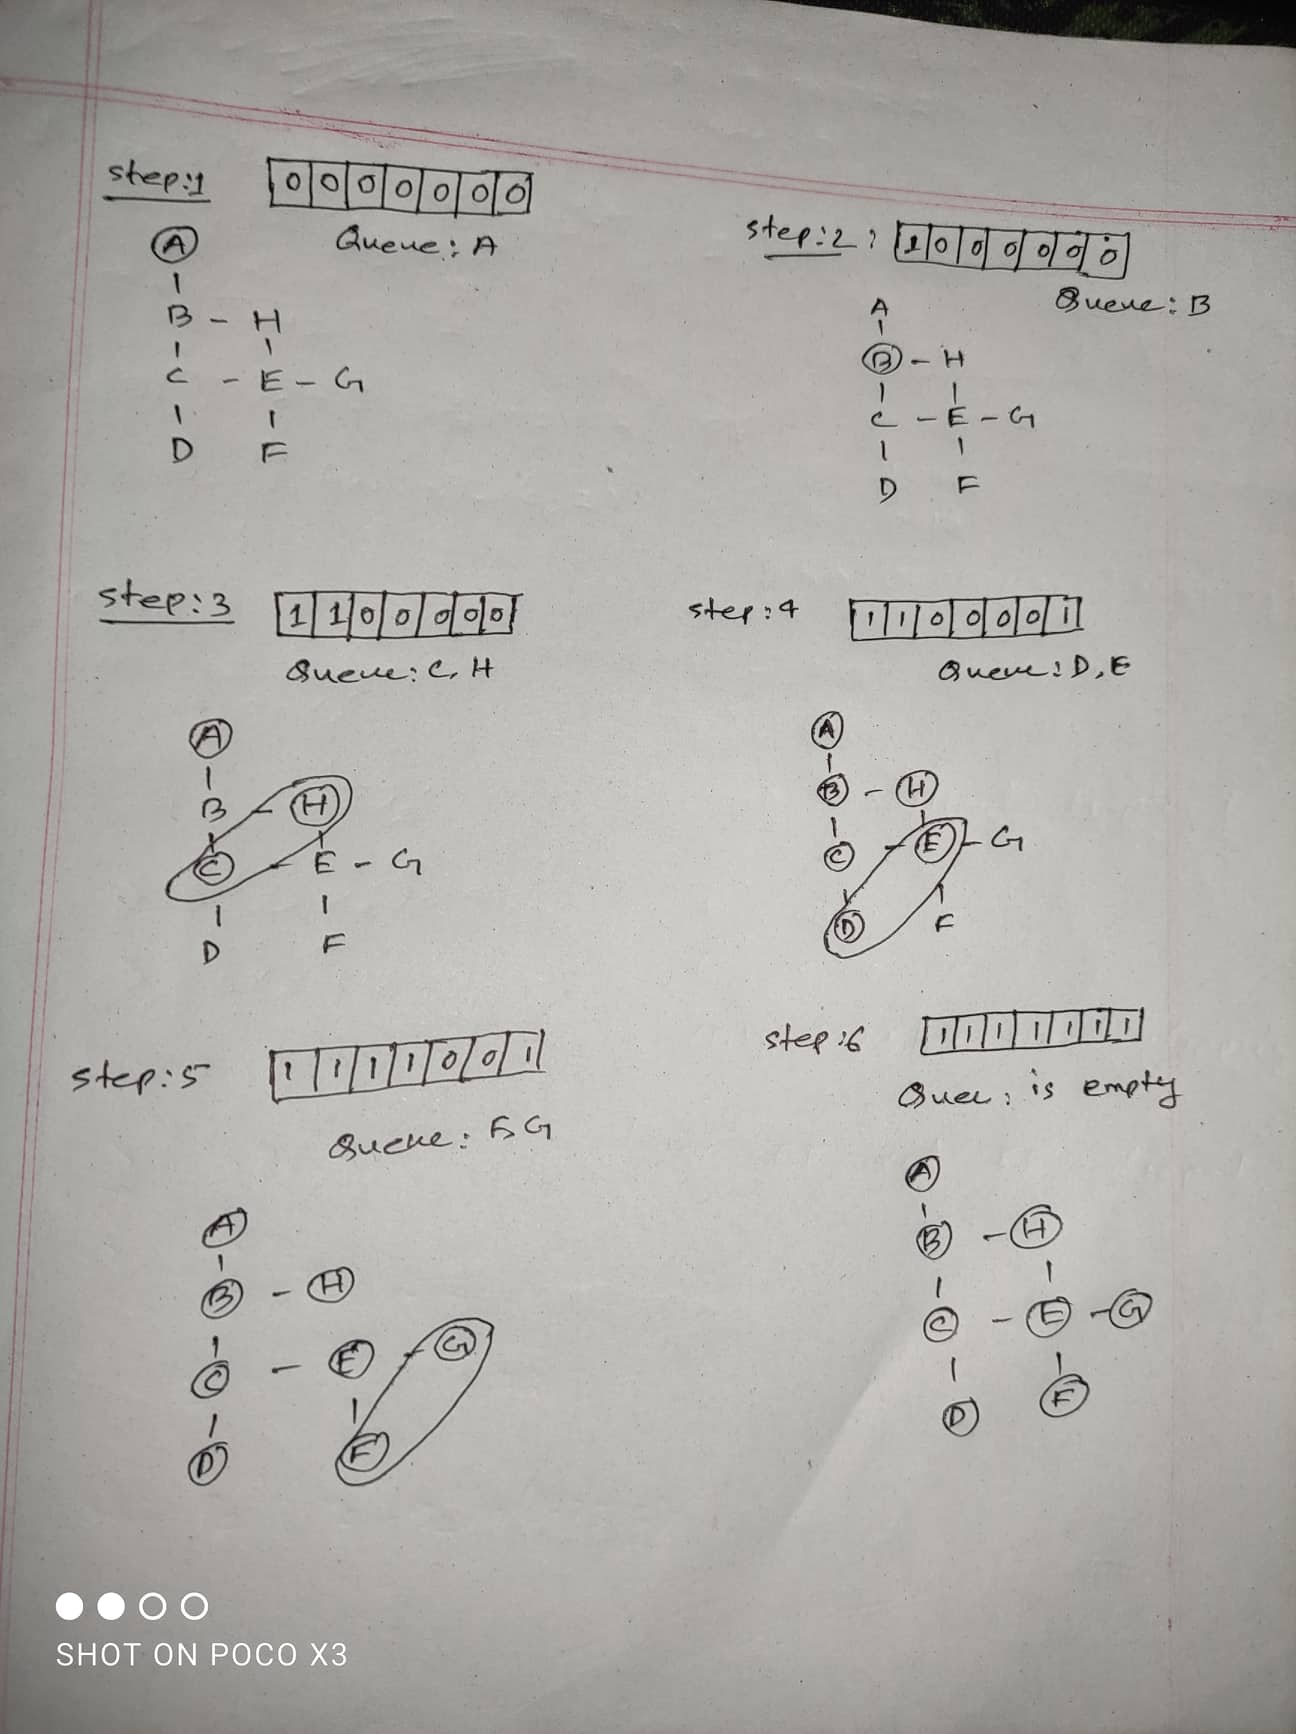 step:1 0 0 0 0 0 0 0
Queue: A
A
B - H
C - E - G
D F
step:2 : 1 0 0 0 0 0 0
Queue: B
A
B - H
C - E - G
D F
step:3 1 1 0 0 0 0 0
Queue: C, H
A
B - H
C - E - G
D F
step:4 1 1 0 0 0 0 1
Queue: D, E
A
B - H
C - E - G
D F
step:5 1 1 1 1 0 0 1
Queue: F, G
A
B - H
C - E - G
D F
step:6 1 1 1 1 1 1 1
Quee: is empty
A
B - H
C - E - G
D F
SHOT ON POCO X3